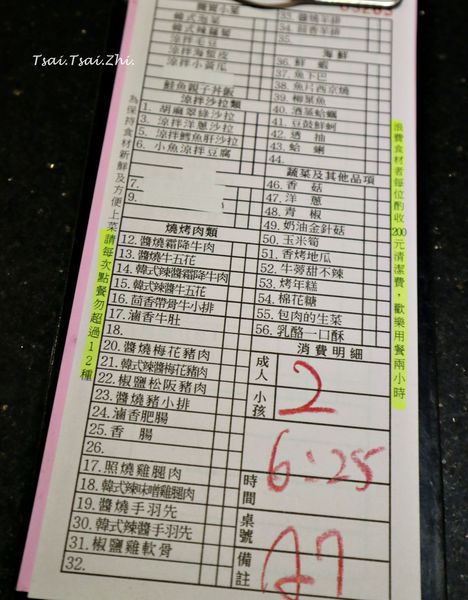 Tsai.Tsai.Zhi.
韓式泡菜
韓式辣蘿蔔
涼拌毛豆
涼拌海蜇皮
涼拌小黃瓜
鮭魚親子丼飯
涼拌沙拉類
1. 胡麻翠綠沙拉
3. 涼拌洋蔥沙拉
5. 涼拌鱈魚肝沙拉
6. 小魚涼拌豆腐
7.
9.
燒烤肉類
12. 醬燒霜降牛肉
13. 醬燒牛五花
14. 韓式辣醬霜降牛肉
15. 韓式辣醬牛五花
16. 茴香帶骨牛小排
17. 滷香牛肚
18.
20. 醬燒梅花豬肉
21. 韓式辣醬梅花豬肉
22. 椒鹽松阪豬肉
23. 醬燒豬小排
24. 滷香肥腸
25. 香 腸
26.
17. 照燒雞腿肉
18. 韓式辣味噌雞腿肉
19. 醬燒手羽先
30. 韓式辣醬手羽先
31. 椒鹽雞軟骨
32.
33. 醬燒羊排
34. 茴香羊排
海鮮
36. 鮮 蝦
37. 魚下巴
38. 魚片西京燒
39. 柳葉魚
40. 酒蒸蛤蠣
41. 豆鼓鮮蚵
42. 透 抽
43. 蛤 蜊
44.
蔬菜及其他品項
46. 香 菇
47. 洋 蔥
48. 青 椒
49. 奶油金針菇
50. 玉米筍
51. 香烤地瓜
52. 牛蒡甜不辣
53. 烤年糕
54. 棉花糖
55. 包肉的生菜
56. 乳酪一口酥
消費明細
成人
小孩
2
時間
6:25
桌號
備註
27
為保持食材新鮮及方便上菜請每次點餐勿超過12種
浪費食材者每位酌收200元清潔費，歡樂用餐兩小時